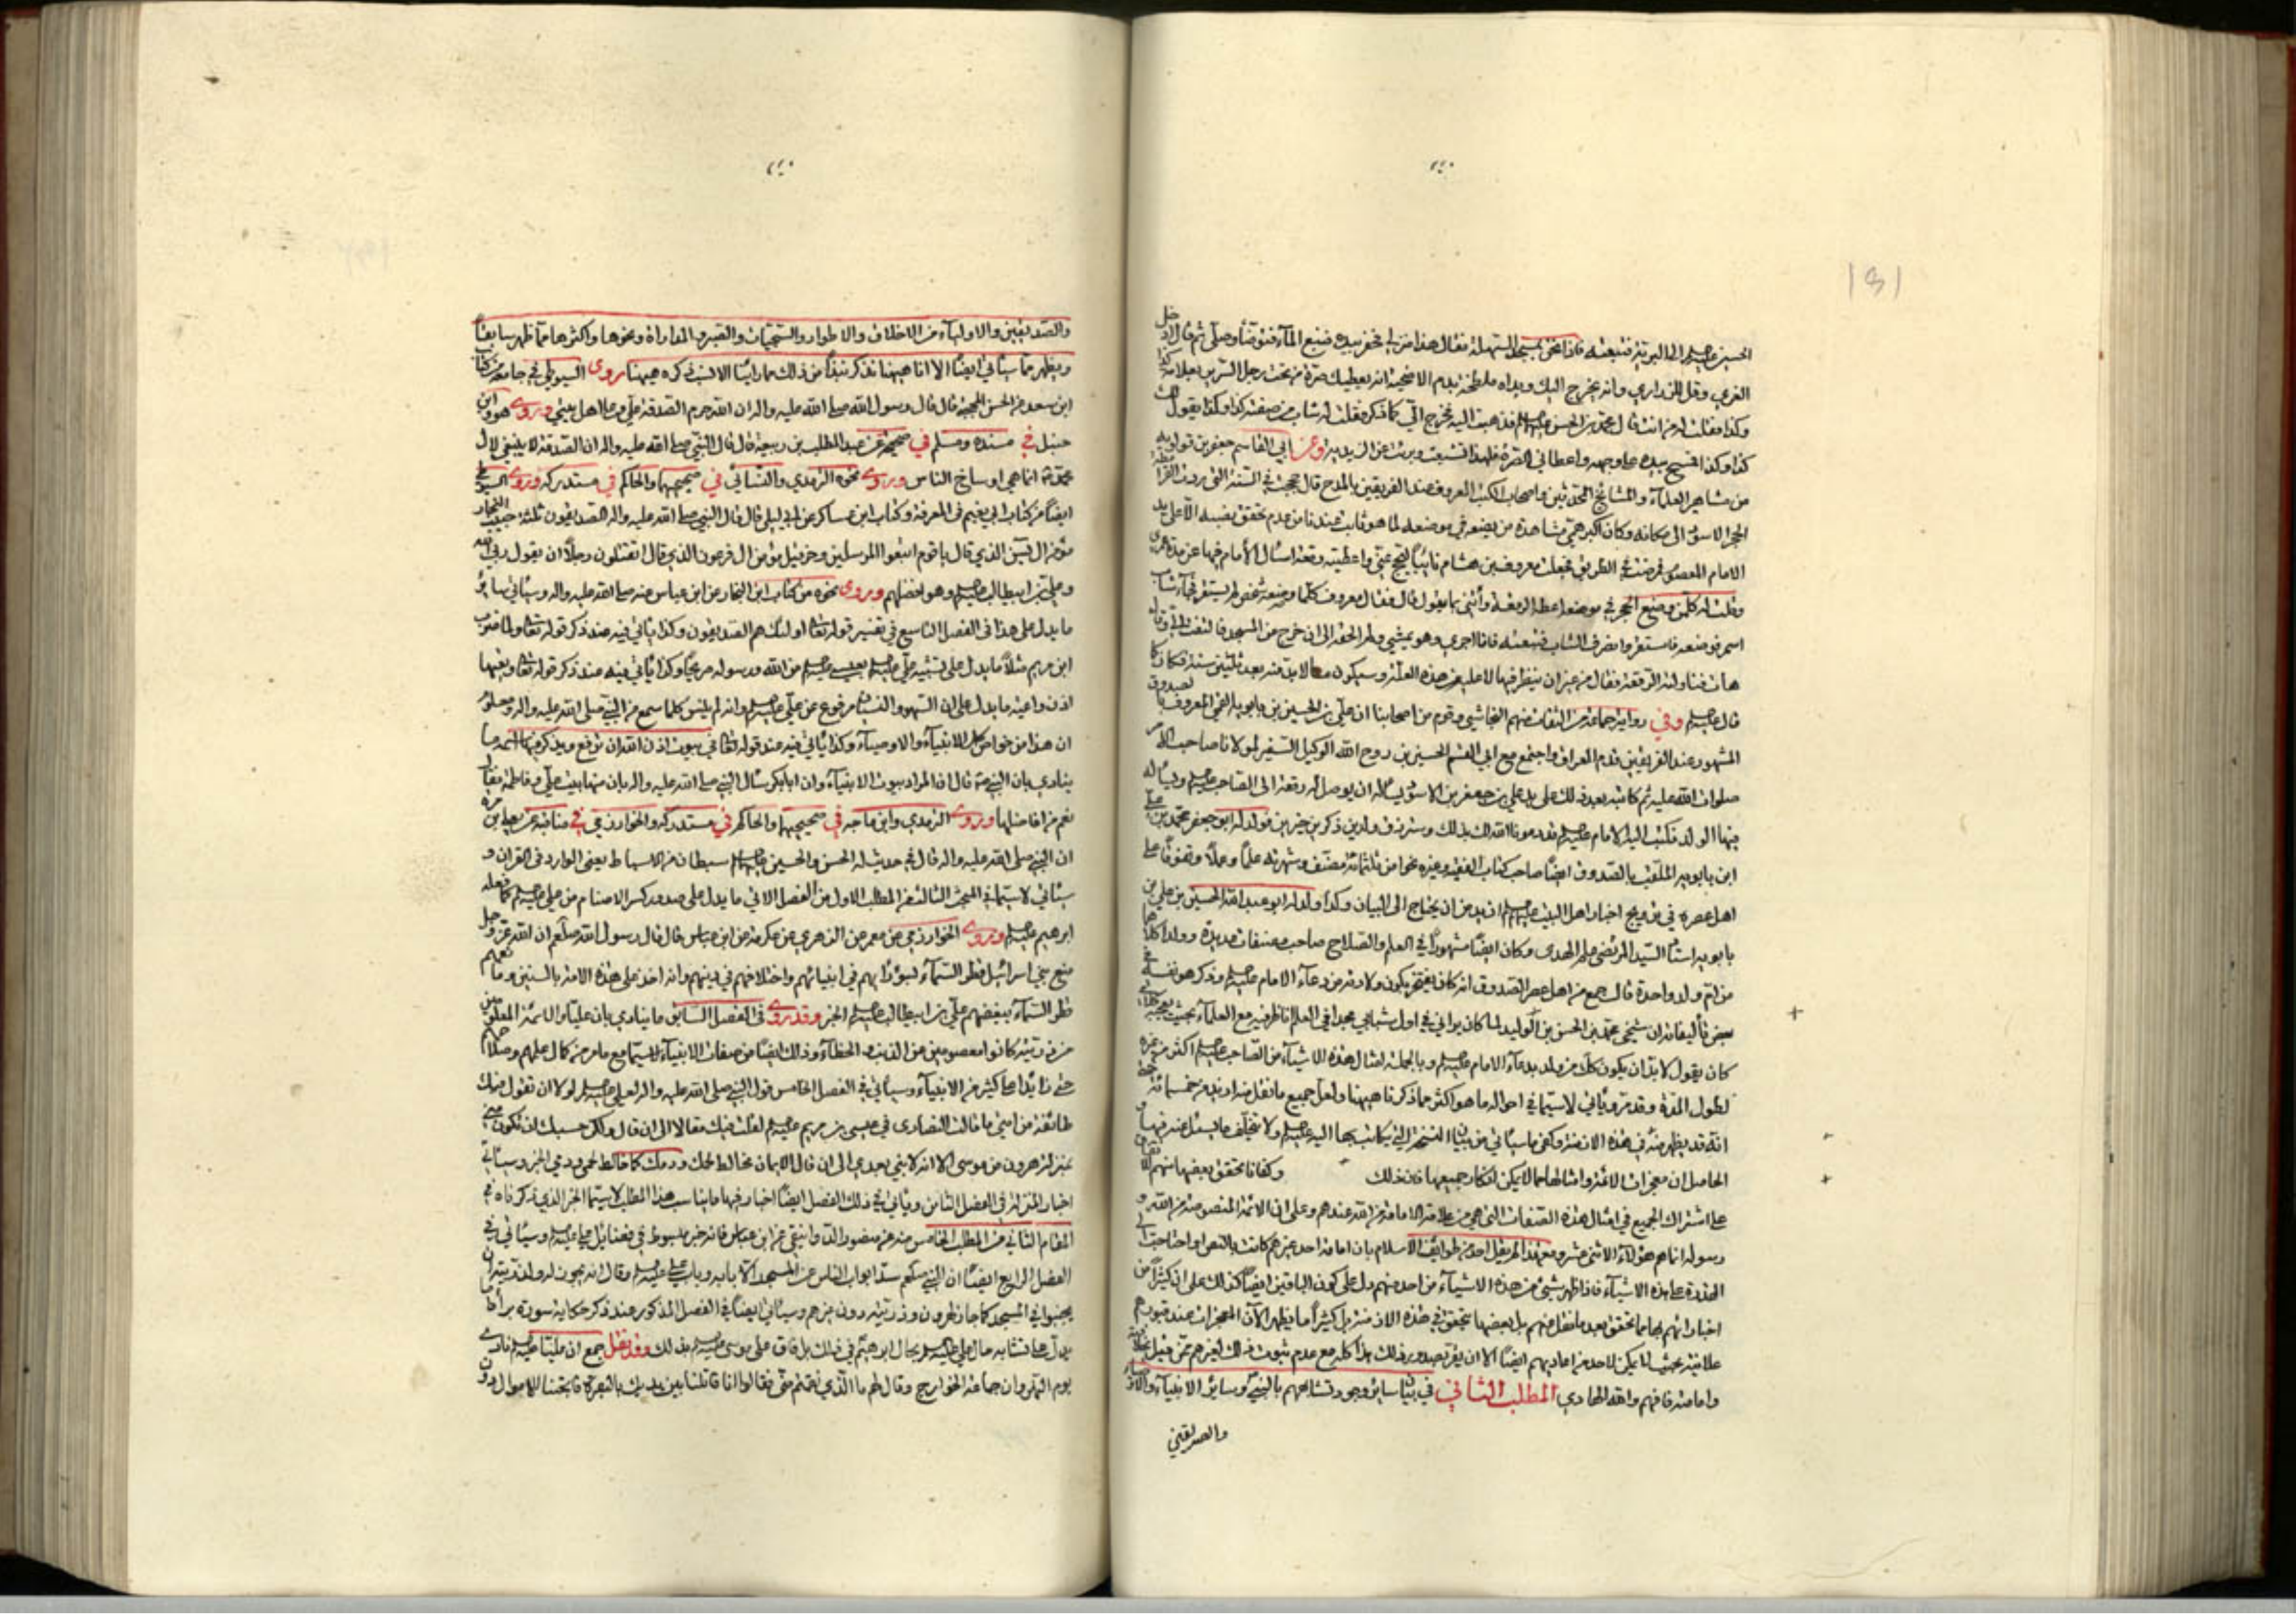 الحسين عليه السلام الى البرية فتبعته فاذا نحن بمسجد السهلة فقال هذا منزلي ثم حفر بيده فنبع الماء فتوضأ وصلى ثم قال ادخل
الغري وقل للزراري وانه يخرج اليك ويداه ملطخة بدم الاضحية انه يعطيك صرة من تحت رجل السرير بعلامة كذا
وكذا فقلت له من انت قال محمد بن الحسن عليه السلام فذهبت اليه فخرج الي كما ذكر فقلت له شاب من صفته كذا وكذا يقول لك
كذا وكذا فمسح بيده على وجهه واعطاني الصرة فلهذا تشيعت وبرئت عن الزيدية وعن ابي القاسم جعفر بن قولويه
من مشاهير العلماء والمشايخ المحدثين واصحاب الكتب المعروف عند الفريقين بالمدح قال حججت في السنة التي ردت القرامطة
الحجر الاسود الى مكانه وكان اكبر همي مشاهدة من يضعه في موضعه لما هو ثابت عندنا من عدم تحقق نصبه الا على يد
الامام المعصوم فمرضت في الطريق فجعلت معروف بن هشام نائبا ليحج عني واعطيته رقعة اسأل الامام فيها عن مدة عمري
وقلت له كل من وضع الحجر في موضعه اعطه الرقعة وأتني بما يقول قال فقال معروف كلما وضعه شخص لم يستقر فجاء شاب
اسمر فوضعه فاستقر وانصرف الشاب فتبعته فانا اجري وهو يمشي ولم الحقه الى ان خرج عن المسجد فالتفت الي وقال
هات فناولته الرقعة فقال من غير ان ينظر فيها لا عليه من هذه العلة وسيكون ما لا بد منه بعد ثلثين سنة فكان كما
قال عليه السلام وفي رواية جماعة من الثقات منهم النجاشي وقوم من اصحابنا ان علي بن الحسين بن بابويه القمي المعروف بالصدوق
المشهور عند الفريقين قدم العراق واجتمع مع ابي القسم الحسين بن روح الله الوكيل السفير لمولانا صاحب الامر
صلوات الله عليه ثم كاتبه بعد ذلك على يد علي بن جعفر بن الاسود يسأله ان يوصل له رقعة الى الصاحب عليه السلام ويسأله
فيها الولد فكتب اليه الامام عليه السلام قد دعونا الله لك بذلك وسترزق ولدين ذكرين خيرين فولد له ابو جعفر محمد بن علي
ابن بابويه الملقب بالصدوق ايضا صاحب كتاب الفقيه وغيره نحوا من ثلثمائة مصنف وشهرته علما وعملا وتفوقا على
اهل عصره في ترويج اخبار اهل البيت عليهم السلام ازيد من ان يحتاج الى البيان وكذا ولد له ابو عبد الله الحسين بن علي بن
بابويه استاد السيد المرتضى علم الهدى وكان ايضا مشهورا في العلم والصلاح صاحب مصنفات عديدة وولدا كلاهما
من ام ولد واحدة قال جمع من اهل عصر الصدوق انه كان يفتخر بكون ولادته من دعاء الامام عليه السلام وذكر هو نفسه في
بعض تأليفاته ان شيخي محمد بن الحسن بن الوليد لما كان يراني في اول شبابي مجدا في العلم اناظر فيه مع العلماء بحيث يعجبه
كان يقول لا بد ان يكون كل من ولد بدعاء الامام عليه السلام وبالجملة امثال هذه الاشياء من الصاحب عليه السلام اكثر من غيره
لطول المدة وقد مر ويأتي لا سيما في احواله ما هو اكثر مما ذكرنا هيهنا ولعل جميع ما نقل منه ازيد من خمسمائة
انه قد يظهر منه في هذه الازمنة وكفى ما سيأتي من بيان النسخة التي يكاتب بها اليه عليه السلام ولا تتخلف ما يسئل عنه فيها
الحاصل ان معجزات الائمة وامثالها مما لا يمكن انكار جميعها فان ذلك وكفانا تحقق بعضها منهم
على اشتراك الجميع في امثال هذه الصفات التي هي من علامة الامامة من الله عندهم وعلى ان الائمة المنصوصة من الله و
رسوله انما هم هؤلاء الاثنى عشر ومع هذا لم يقل احد من طوايف الاسلام بان امامة احد غيرهم كانت بالنص او احتاجت الى
القدرة على هذه الاشياء فاذا ظهر شيئ من هذه الاشياء من احد منهم دل على كون الباقين ايضا كذلك على ان كثيرا من
اخباراتهم بها مما تحقق بعد ما نقل منهم بل بعضها يتحقق في هذه الازمنة بل كثيرا ما يظهر الآن المعجزات عند قبورهم
علانية بحيث لا يمكن لاحد من اعاديهم ايضا الا ان يقر بصدور ذلك هذا كله مع عدم ثبوت ذلك لغيرهم ممن قيل بخلافته
وامامته فافهم والله الهادي المطلب الثاني في بيان ساير وجوه تشابههم بالنبي وساير الانبياء والاوصياء
والصديقين
والصديقين والاولياء من الاخلاق والاطوار والسجيات والصبر والمداراة ونحوها واكثرها مما ظهر سابقا
ويظهر مما سيأتي ايضا الا انا هيهنا نذكر نبذا من ذلك مما رأينا الانسب ذكره هيهنا روى السيوطي في جامعه من كتاب
ابن سعد عن الحسن المجتبى قال قال رسول الله صلى الله عليه واله ان الله حرم الصدقة علي وعلى اهل بيتي وروى هو وابن
حنبل في مسنده ومسلم في صحيحه عن عبد المطلب بن ربيعة قال قال النبي صلى الله عليه واله ان الصدقة لا ينبغي لال
محمد انما هي اوساخ الناس وروى نحوه الترمذي والنسائي في صحيحيهما والحاكم في مستدركه وروى السيوطي
ايضا من كتاب ابي نعيم في المعرفة وكتاب ابن عساكر عن ابي ليلى قال قال النبي صلى الله عليه واله الصديقون ثلثة حبيب النجار
مؤمن ال يس الذي قال يا قوم اتبعوا المرسلين وحزقيل مؤمن ال فرعون الذي قال اتقتلون رجلا ان يقول ربي الله
وعلي بن ابيطالب عليه السلام وهو افضلهم وروى نحوه من كتاب ابن النجار عن ابن عباس عنه صلى الله عليه واله وسيأتي ساير
ما يدل على هذا في الفصل التاسع في تفسير قوله تعالى اولئك هم الصديقون وكذا يأتي فيه عند ذكر قوله تعالى ولما ضرب
ابن مريم مثلا ما يدل على تشبيه علي عليه السلام بعيسى عليه السلام من الله ورسوله صريحا وكذا يأتي فيه عند ذكر قوله تعالى وتعيها
اذن واعية ما يدل على ان السهو والنسيان مرفوع عن علي عليه السلام وانه لم ينس كلما سمع من النبي صلى الله عليه واله ومعلوم
ان هذا من خواص الانبياء والاوصياء وكذا يأتي فيه عند قوله تعالى في بيوت اذن الله ان ترفع ويذكر فيها اسمه ما
ينادي بان النبي قال ان المراد بيوت الانبياء وان ابابكر سأل النبي صلى الله عليه واله بان منها بيت علي وفاطمة فقال
نعم من افاضلها وروى الترمذي وابن ماجه في صحيحيهما والحاكم في مستدركه والخوارزمي في مناقبه عن يعلى بن مرة
ان النبي صلى الله عليه واله قال في حديث له الحسن والحسين عليهما السلام سبطان من الاسباط يعني الوارد في القران و
سيأتي لا سيما في المبحث الثالث من المطلب الاول من الفصل الاتي ما يدل على صدور كسر الاصنام من علي عليه السلام كما فعله
ابرهيم عليه السلام وروى الخوارزمي عن معمر عن الزهري عن عكرمة عن ابن عباس قال قال رسول الله صلعم ان الله عز وجل
منع بني اسرائيل قطر السماء بسوء رأيهم في انبيائهم واختلافهم في دينهم وانه اخذ على هذه الامة بالسنين ومانعهم
قطر السماء ببغضهم علي بن ابيطالب عليه السلام الخبر وقد روى في الفصل السابق ما ينادي بان عليا والائمة المعلومين
من ذريته كانوا معصومين عن الذنب والخطاء وذلك ايضا من صفات الانبياء لا سيما مع ما مر من كمال علمهم وصلاحهم
حتى زائدا على كثير من الانبياء وسيأتي في الفصل الخامس قول النبي صلى الله عليه واله لعلي عليه السلام لولا ان تقول فيك
طائفة من امتي ما قالت النصارى في عيسى بن مريم عليه السلام لقلت فيك مقالا الى ان قال ولكن حسبك ان تكون مني
بمنزلة هرون من موسى الا انه لا نبي بعدي الى ان قال الايمان مخالط لحمك ودمك كما خالط لحمي ودمي الخبر وسيأتي
اخبار المنزلة في الفصل الثامن ويأتي في ذلك الفصل ايضا اخبار فيها ما يناسب هذا المطلب لا سيما الخبر الذي ذكرناه في
المقام الثاني من المطلب الخامس منه عن منصور الدوانيقي عن ابن عباس فانه خبر مبسوط في فضايل علي عليه السلام وسيأتي في
الفصل الرابع ايضا ان النبي صلعم سد ابواب الناس عن المسجد الا بابه وباب علي عليه السلام وقال انه يجوز له ولذريته ان
يجنبوا في المسجد كما جاز لهرون وذريته دون غيرهم وسيأتي ايضا في الفصل المذكور عند ذكر حكاية سورة براءة ما
يدل على تشابه حال علي عليه السلام بحال ابرهيم في ذلك بل فاق على موسى عليه السلام بذلك وقد نقل جمع ان عليا عليه السلام نادى
يوم النهروان جماعة الخوارج وقال لهم ما الذي نقمتم مني فقالوا انا قاتلنا بين يديك بالبصرة فابحتنا الاموال دون